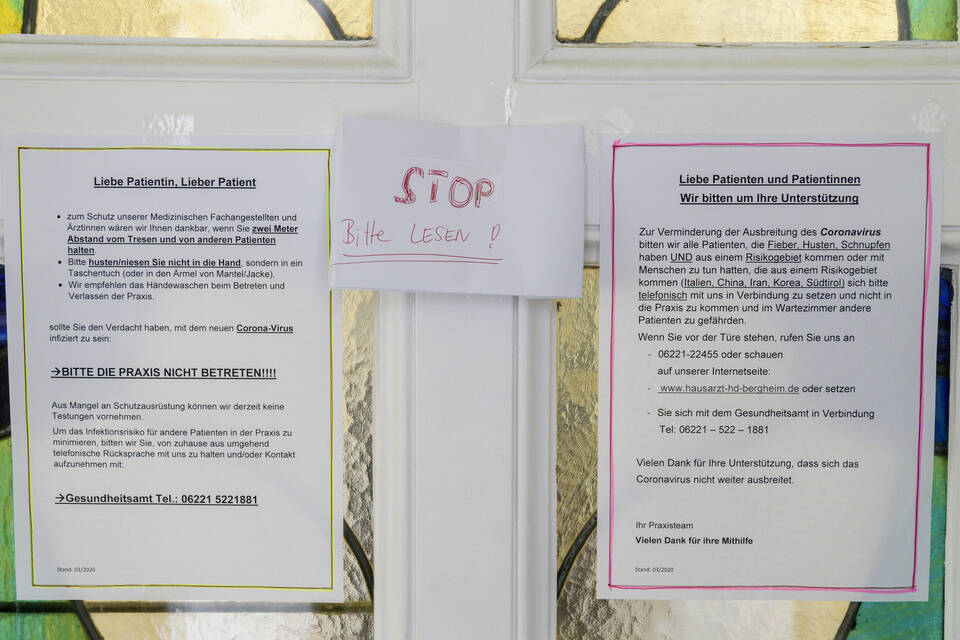 Liebe Patientin, Lieber Patient
• zum Schutz unserer Medizinischen Fachangestellten und
Ärztinnen wären wir Ihnen dankbar, wenn Sie zwei Meter
Abstand vom Tresen und von anderen Patienten
halten.
• Bitte husten/niesen Sie nicht in die Hand, sondern in ein
Taschentuch (oder in den Ärmel von Mantel/Jacke).
• Wir empfehlen das Händewaschen beim Betreten und
Verlassen der Praxis.
sollte Sie den Verdacht haben, mit dem neuen Corona-Virus
infiziert zu sein:
→BITTE DIE PRAXIS NICHT BETRETEN!!!!
Aus Mangel an Schutzausrüstung können wir derzeit keine
Testungen vornehmen.
Um das Infektionsrisiko für andere Patienten in der Praxis zu
minimieren, bitten wir Sie, von zuhause aus umgehend
telefonische Rücksprache mit uns zu halten und/oder Kontakt
aufzunehmen mit:
→Gesundheitsamt Tel.: 06221 5221881
Stand: 03/2020
STOP
Bitte LESEN !
Liebe Patienten und Patientinnen
Wir bitten um Ihre Unterstützung
Zur Verminderung der Ausbreitung des Coronavirus
bitten wir alle Patienten, die Fieber, Husten, Schnupfen
haben UND aus einem Risikogebiet kommen oder mit
Menschen zu tun hatten, die aus einem Risikogebiet
kommen (Italien, China, Iran, Korea, Südtirol) sich bitte
telefonisch mit uns in Verbindung zu setzen und nicht in
die Praxis zu kommen und im Wartezimmer andere
Patienten zu gefährden.
Wenn Sie vor der Türe stehen, rufen Sie uns an
- 06221-22455 oder schauen
auf unserer Internetseite:
- www.hausarzt-hd-bergheim.de oder setzen
- Sie sich mit dem Gesundheitsamt in Verbindung
Tel: 06221 – 522 – 1881
Vielen Dank für Ihre Unterstützung, dass sich das
Coronavirus nicht weiter ausbreitet.
Ihr Praxisteam
Vielen Dank für ihre Mithilfe
Stand: 03/2020